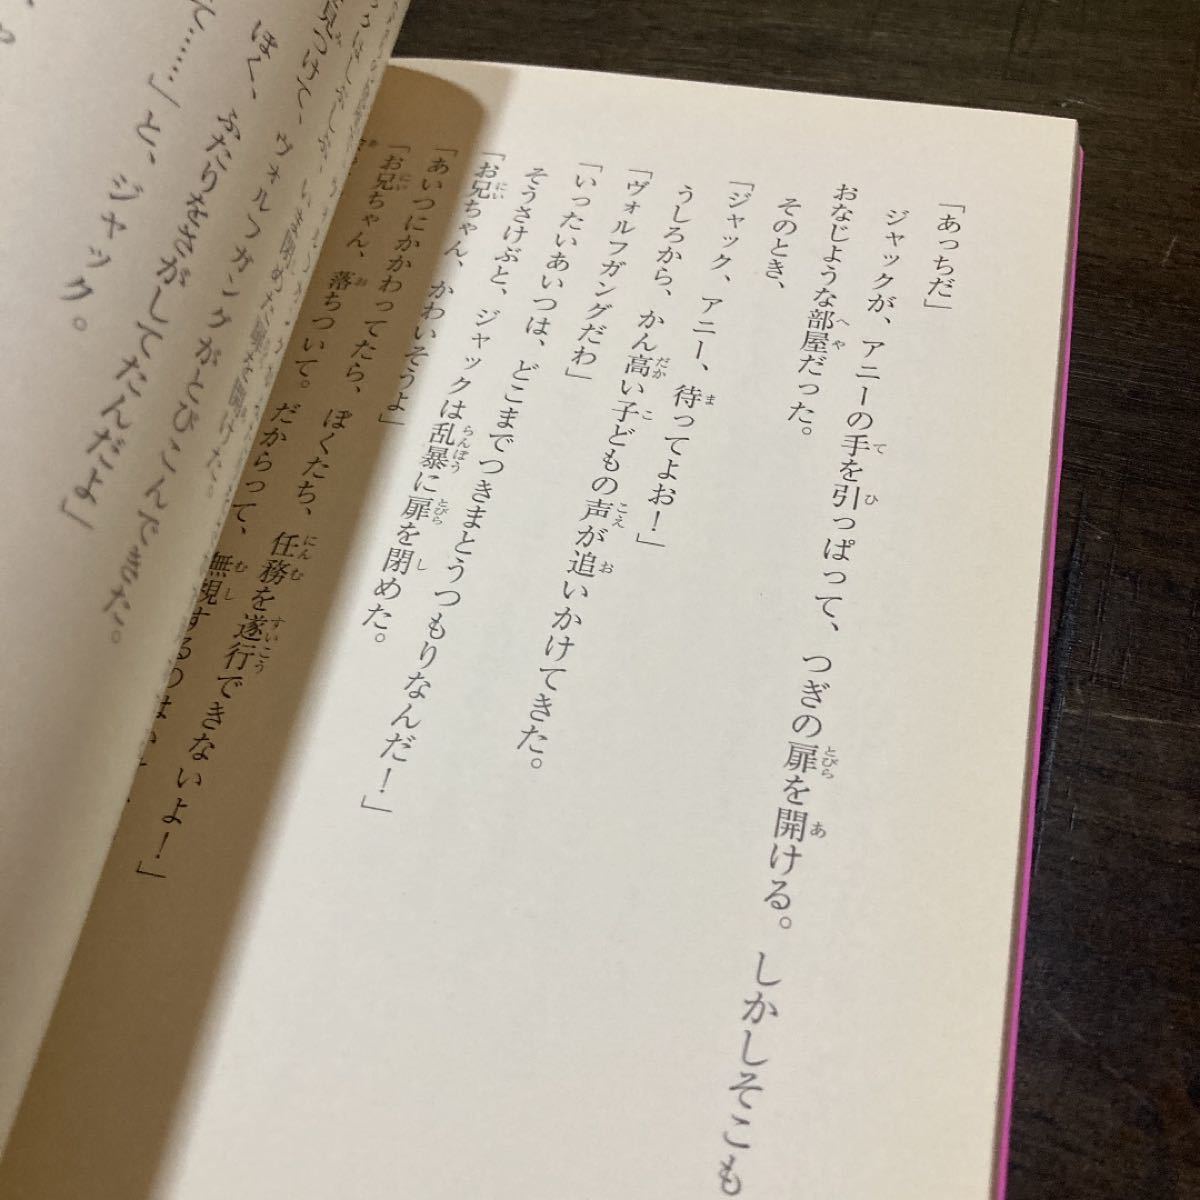 「あっちだ」
ジャックが、アニーの手を引っぱって、つぎの扉を開ける。しかしそこも
おなじような部屋だった。
そのとき、
「ジャック、アニー、待ってよお！」
うしろから、かん高い子どもの声が追いかけてきた。
「ヴォルフガングだわ」
「いったいあいつは、どこまでつきまとうつもりなんだ！」
そうさけぶと、ジャックは乱暴に扉を閉めた。
「お兄ちゃん、かわいそうよ」
「あいつにかかわってたら、ぼくたち、任務を遂行できないよ！」
「お兄ちゃん、落ちついて。だからって、無視するのは
見つけて、ヴォルフガングがとびこんできた。
ぼく、ふたりをさがしてたんだよ」
て……」と、ジャック。